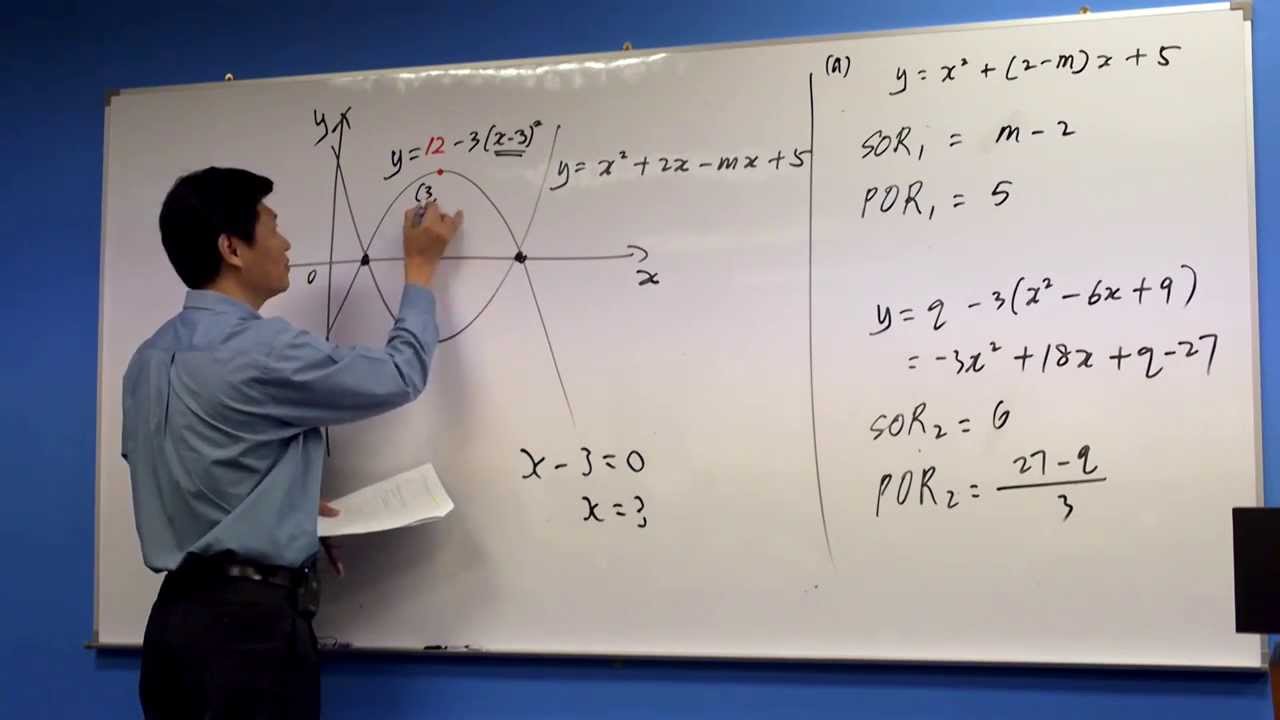 y
y = 12 - 3(x-3)²
y = x² + 2x - mx + 5
(3,
0
x
x - 3 = 0
x = 3
(a)
y = x² + (2-m)x + 5
SOR₁ = m - 2
POR₁ = 5
y = q - 3(x² - 6x + 9)
= -3x² + 18x + q - 27
SOR₂ = 6
POR₂ = (27 - q)/3